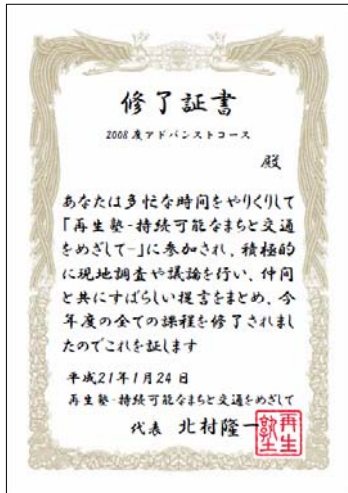 修了証書
2008度アドバンストコース
殿
あなたは多忙な時間をやりくりして
「再生塾-持続可能なまちと交通
をめざして-」に参加され、積極的
に現地調査や議論を行い、仲間
と共にすばらしい提言をまとめ、今
年度の全ての課程を修了されまし
たのでこれを証します
平成21年1月24日
再生塾-持続可能なまちと交通をめざして
代表 北村隆一
再生
塾